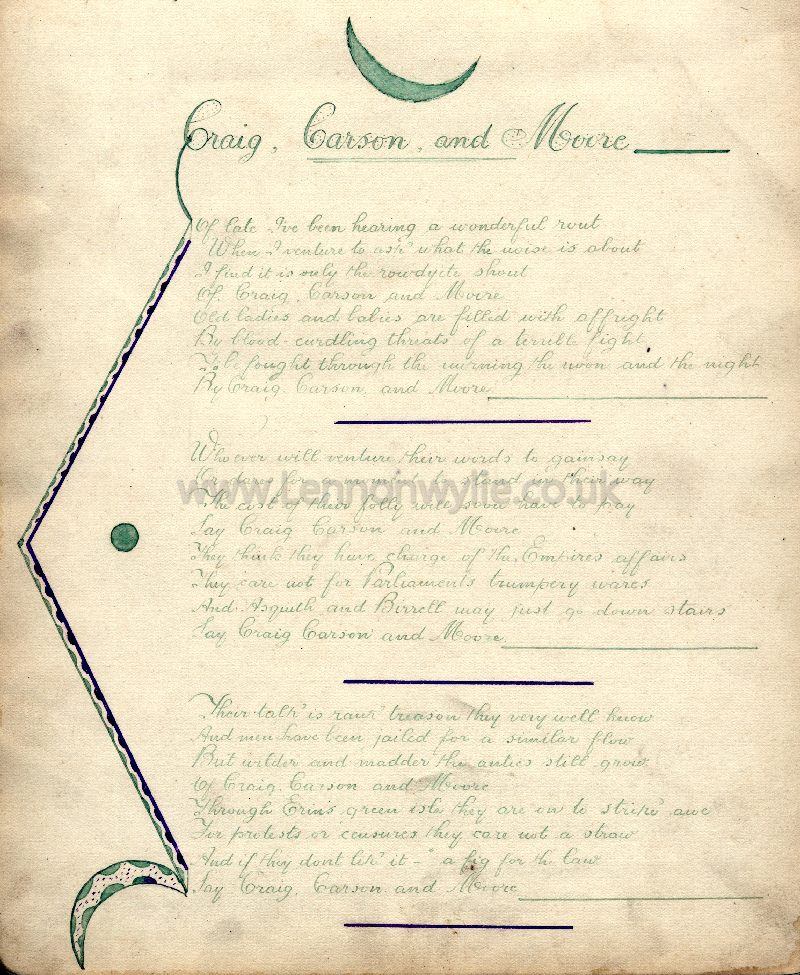 Craig, Carson, and Moore
Of late I've been hearing a wonderful rout
When I venture to ask what the noise is about
I find it is only the rowdyite shout
Of, Craig, Carson and Moore
Old ladies and babies are filled with affright
By blood-curdling threats of a terrible fight
To be fought through the morning the noon and the night
By Craig, Carson, and Moore
Whoever will venture their words to gainsay
Or dare for a moment to stand in their way
The cost of their folly will soon have to pay
Say Craig Carson and Moore
They think they have charge of the Empires affairs
They care not for Parliaments trumpery wares
And Asquith and Birrell may just go down stairs
Say Craig Carson and Moore
www.Lennonwylie.co.uk
Their talk is rank treason they very well know
And men have been jailed for a similar flow
But wilder and madder the antics still grow
Of Craig, Carson and Moore
Through Erin's green isle they are on to strike awe
For protests or censures they care not a straw
And if they dont like it - "a fig for the law
Say Craig, Carson and Moore